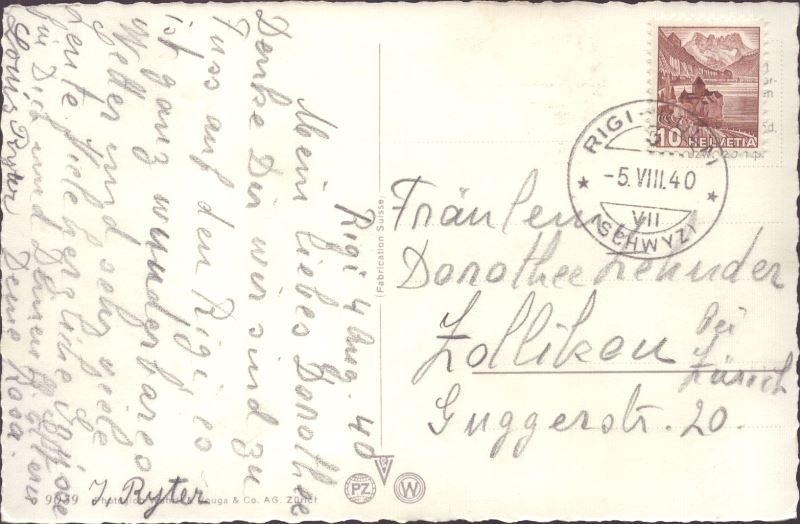 Rigi 4 Aug. 40
Mein liebes Dorothee
Denke Dir wir sind zu
Fuss auf den Rigi es
ist ganz wunderbares
Wetter und sehr viele
Leute. Viele herzliche Grüsse
für Dich und Deinen
Deine Rosa.
Louis Ryter
J Ryter
(Fabrication Suisse)
HELVETIA
10
RIGI
-5.VIII.40
VII
Fräulein
Dorothee Zehnder
Zollikon bei
Zürich
Guggerstr. 20.
9039
& Co. AG. Zürich
PZ
W